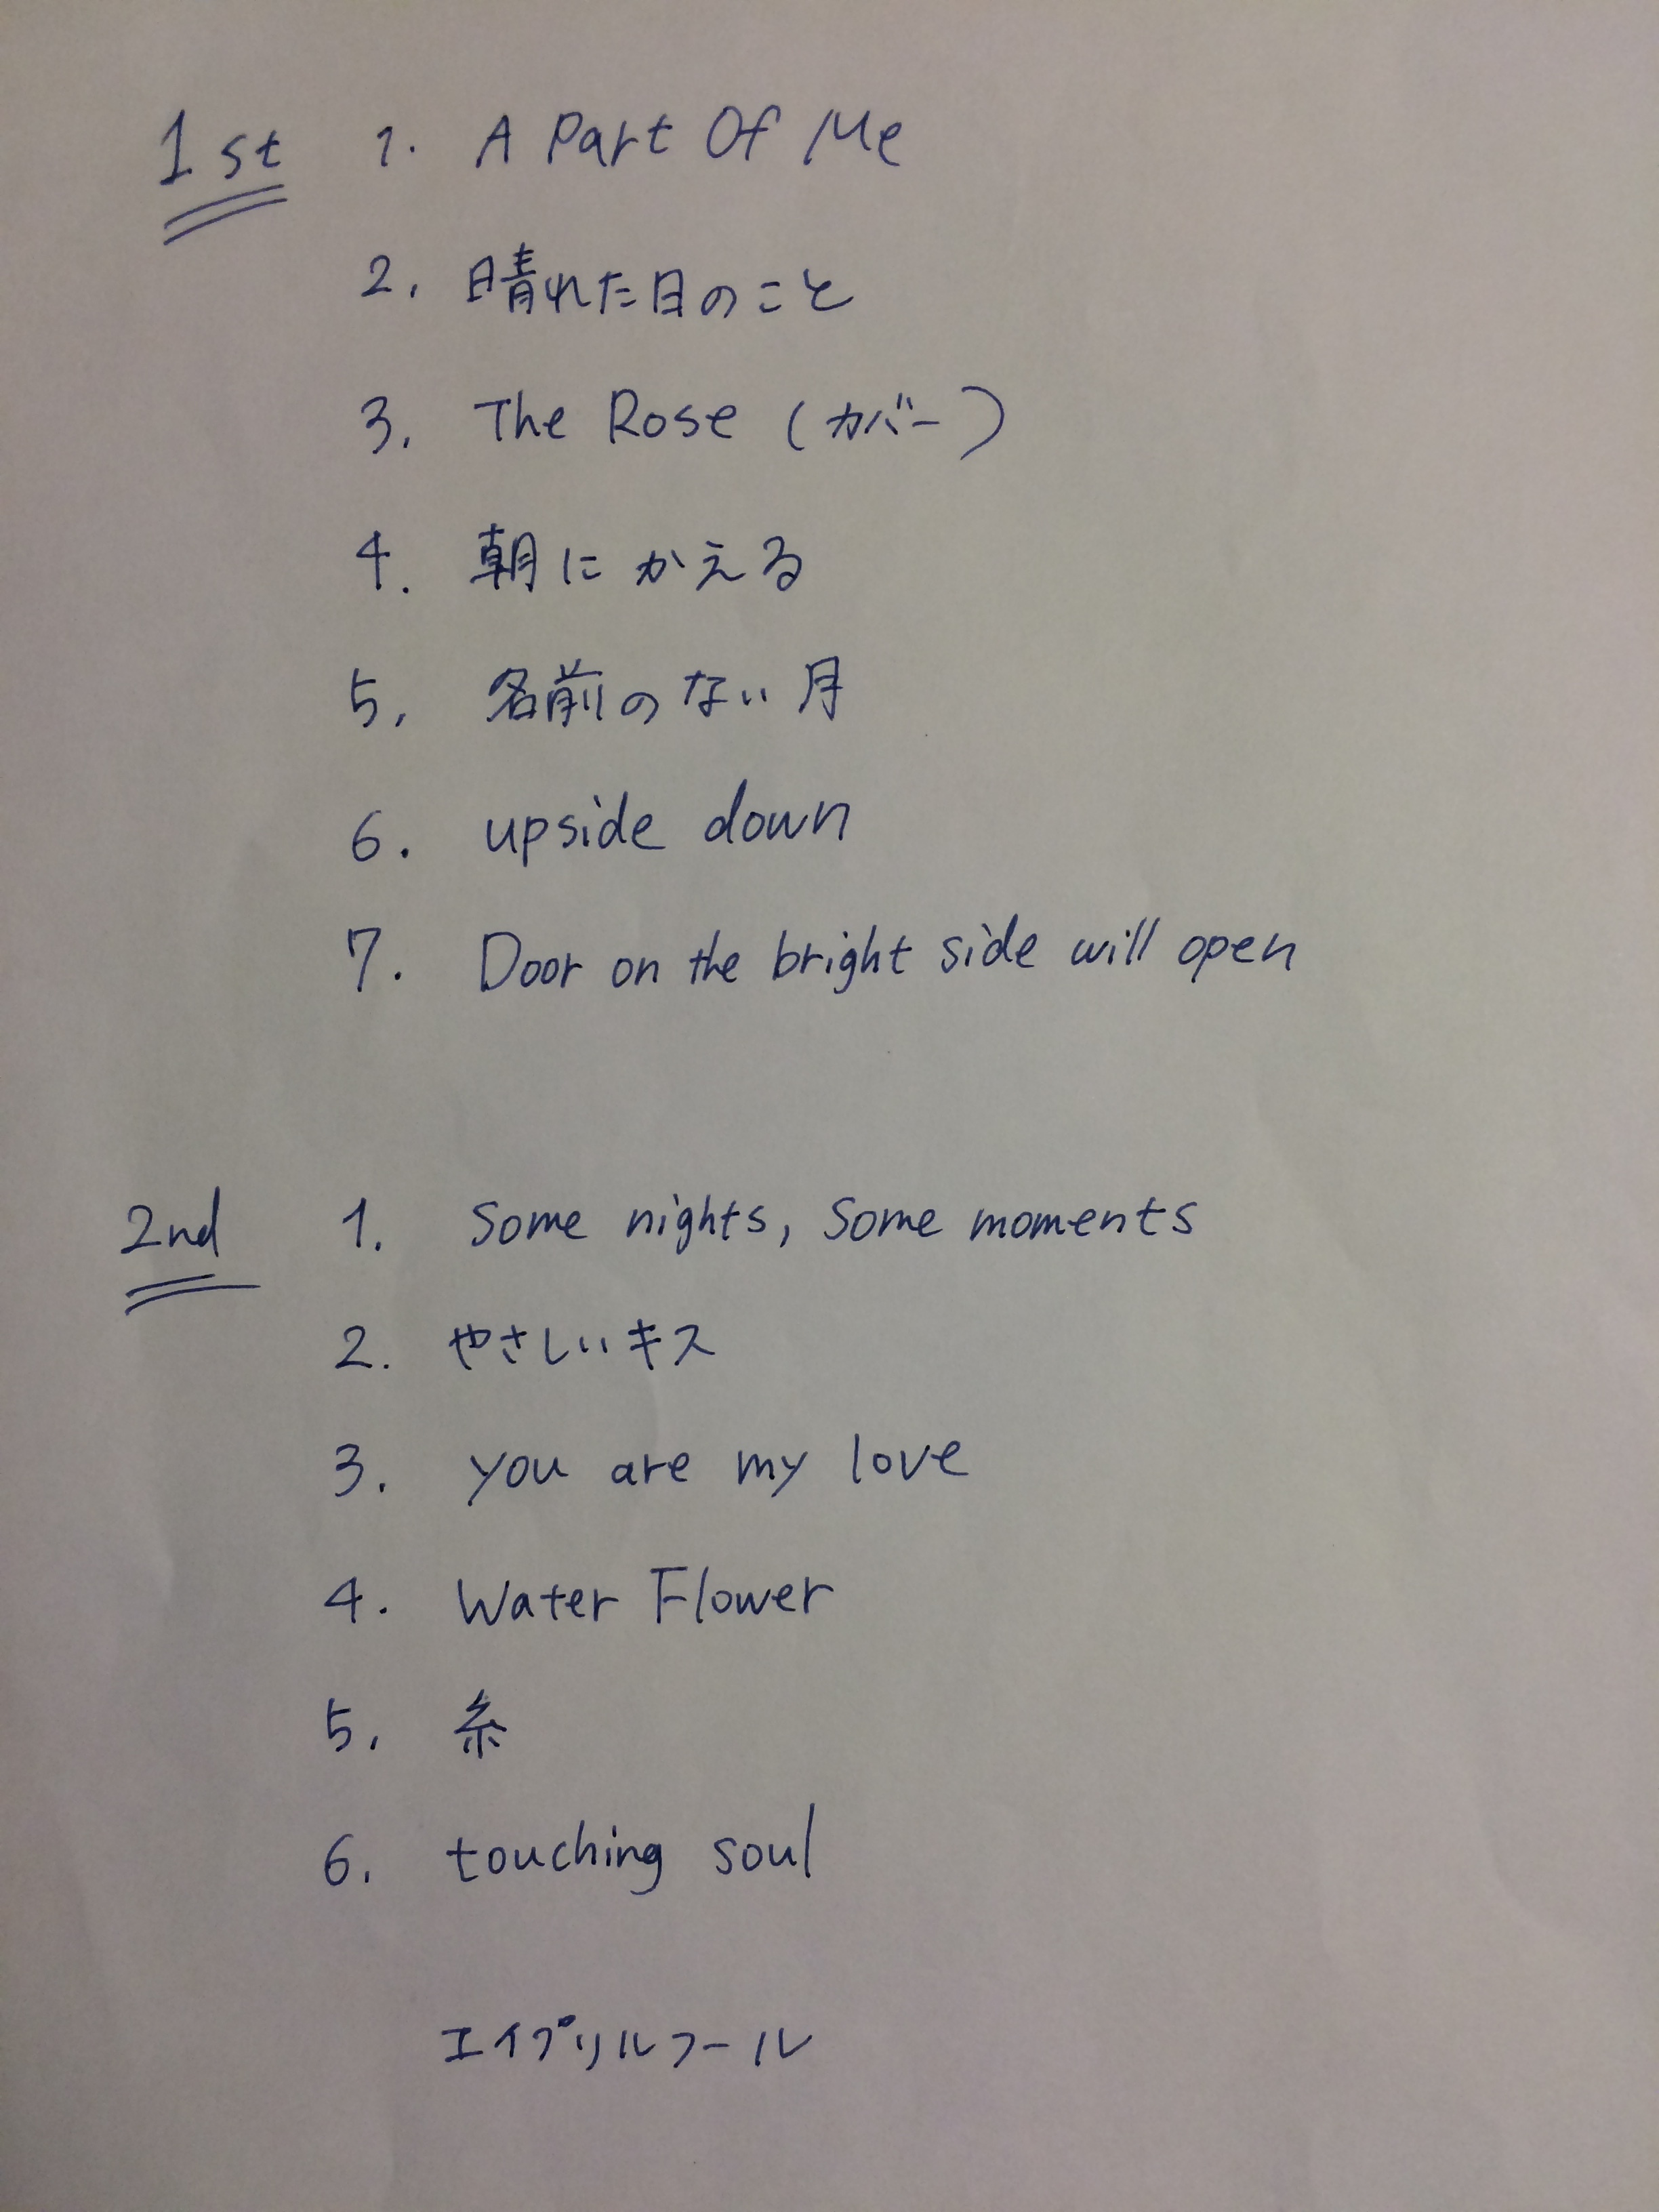 1st 1. A Part Of Me
2. 晴れた日のこと
3. The Rose (カバー)
4. 朝にかえる
5. 名前のない月
6. upside down
7. Door on the bright side will open
2nd 1. Some nights, Some moments
2. やさしいキス
3. you are my love
4. Water Flower
5. 糸
6. touching soul
エイプリルフール